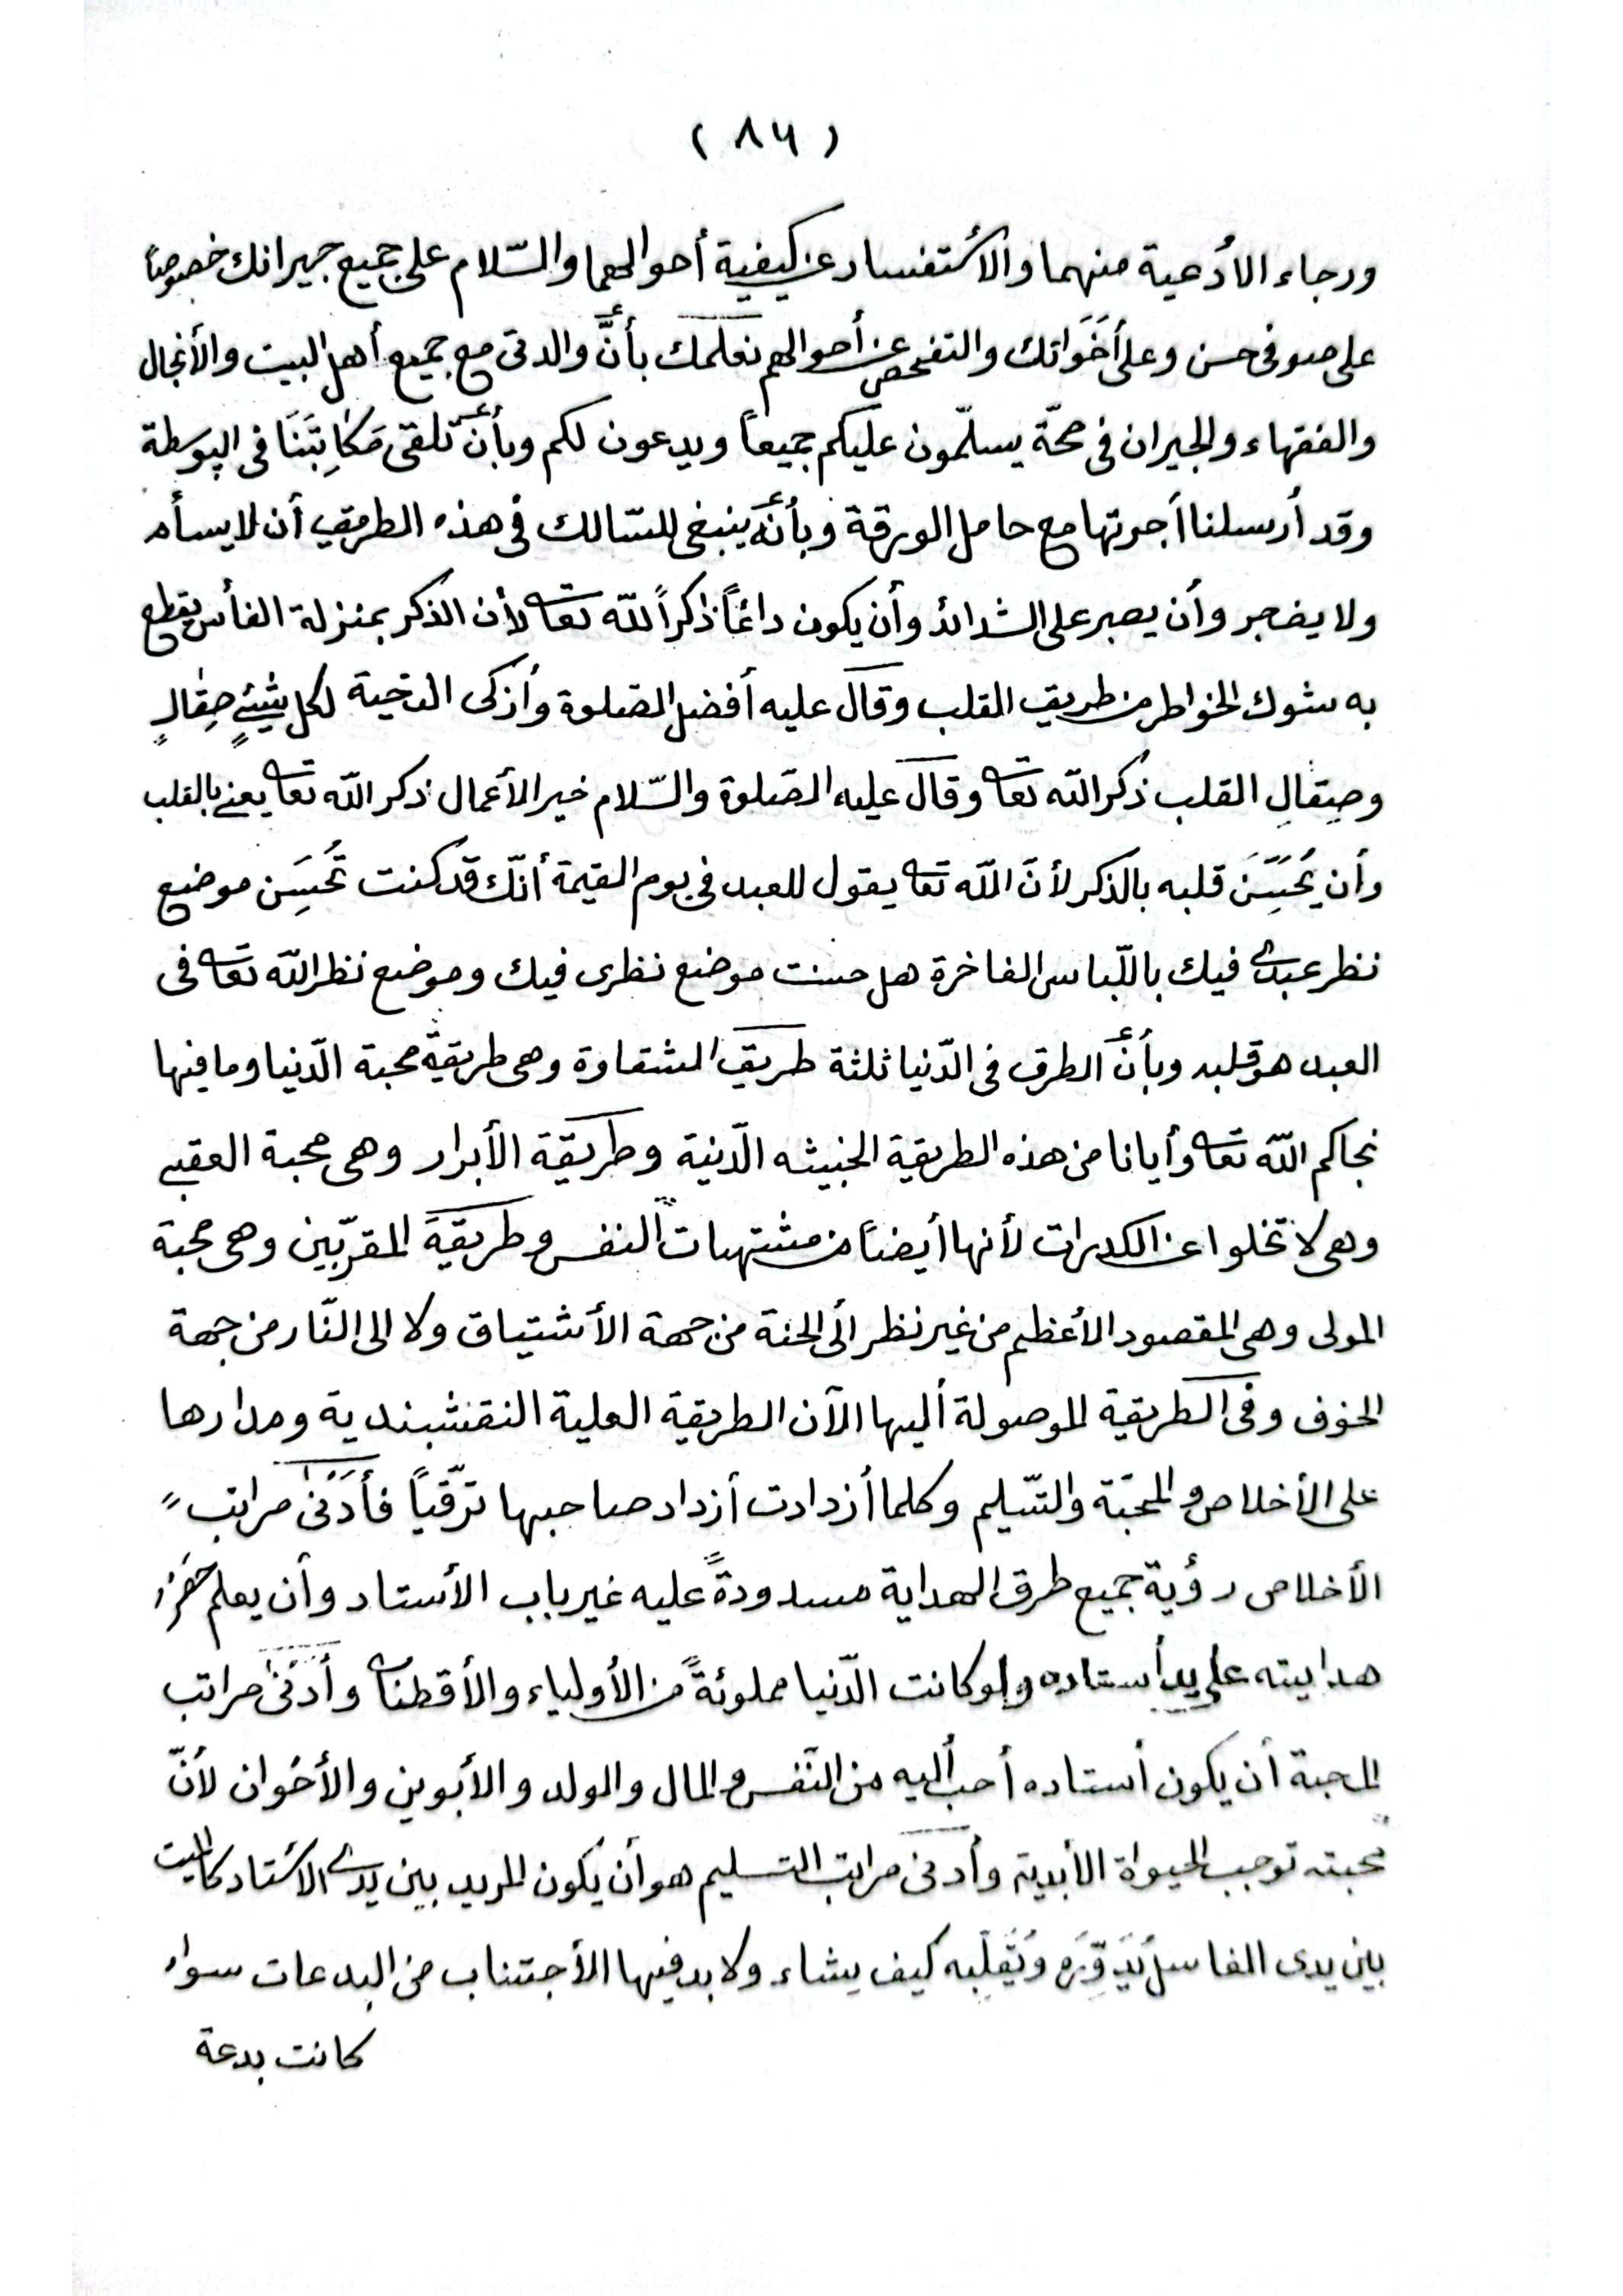 ( ٨٦ )
ورجاء الأدعية منهما والأستفسار عن كيفية أحوالهما والسّلام على جميع جيرانك خصوصاً
على صوفى حسن وعلى أَخَوَاتك والتفحص عن أحوالهم نعلمك بأنَّ والدتى مع جميع أهل البيت والأنجال
والفقهاء والجيران فى صحّة يسلّمون عليكم جميعاً ويدعون لكم وبأنّ تلقى مَكَاتِبَنَا فى الپوسطة
وقد أرسلنا أجرتها مع حامل الورقة وبأنّه ينبغى للسّالك فى هذه الطريق أن لا يسأم
ولا يضجر وأن يصبر على الشدائد وأن يكون دائماً ذاكراً للّه تعا لأن الذكر بمنزلة الفأس يقطع
به شوك الخواطر من طريق القلب وقال عليه أفضل الصّلوة وأزكى التحية لكل شيئٍ صِقالٍ
وصِقالِ القلب ذكر اللّه تعا وقال عليه الصّلوة والسّلام خير الأعمال ذكر اللّه تعا يعنى بالقلب
وأن يُحَسِّنَ قلبه بالذكر لأنّ اللّه تعا يقول للعبد فى يوم القيمة أنّك قد كنت تُحَسِّن موضع
نظر عبدى فيك باللّباس الفاخرة هل حسنت موضع نظرى فيك وموضع نظر اللّه تعا فى
العبد هو قلبه وبأنّ الطرق فى الدّنيا ثلثة طريق الشقاوة وهى طريقة محبة الدّنيا وما فيها
نجاكم اللّه تعا وأيانا من هذه الطريقة الخبيثه الدّنية وطريقة الأبرار وهى محبة العقبى
وهى لا تخلوا عن الكدرات لأنها أيضاً من مشتهيات النفس وطريقة المقرّبين وهى محبة
المولى وهى المقصود الأعظم من غير نظر الى الجنة من جهة الأشتياق ولا الى النّار من جهة
الخوف وفى الطريقة الموصولة أليها الآن الطريقة العلية النقشبندية ومدارها
على الأخلاص والمحبّة والتّسليم وكلما أزدادت أزداد صاحبها ترّقياً فأَدَنىٰ مراتب
الأخلاص رؤية جميع طرق الهداية مسدودةً عليه غير باب الأستاد وأن يعلم
هدايته على يد أستاده ولو كانت الدّنيا مملوئةً من الأولياء والأقطاب وأدَنىٰ مراتب
المحبة أن يكون أستاده أحب أليه من النّفس والمال والولد والأبوين والأخوان لأنّ
محبته توجب الحيواة الأبدية وأدنى مراتب التسليم هو أن يكون المريد بين يدى الأستاد كالميت
بين يدى الغاسل يُدَوِّره ويُقَلّبه كيف يشاء ولا بد فيها الأجتناب من البدعات سواء
كانت بدعة